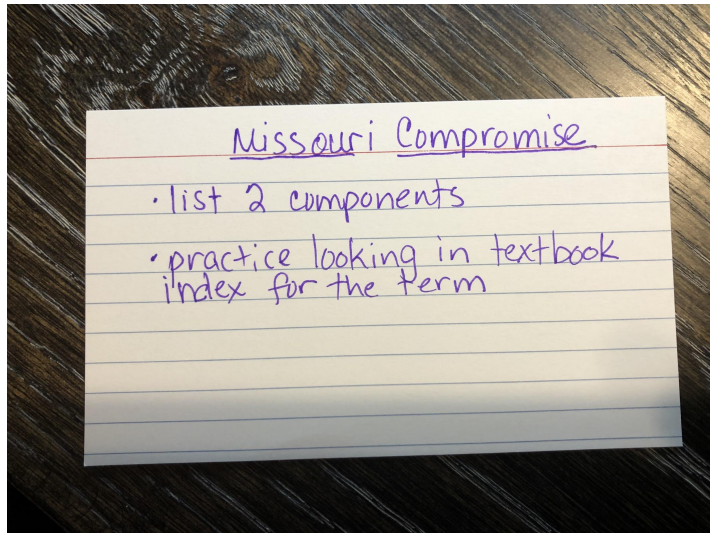 Missouri Compromise
· list 2 components
· practice looking in textbook
index for the term